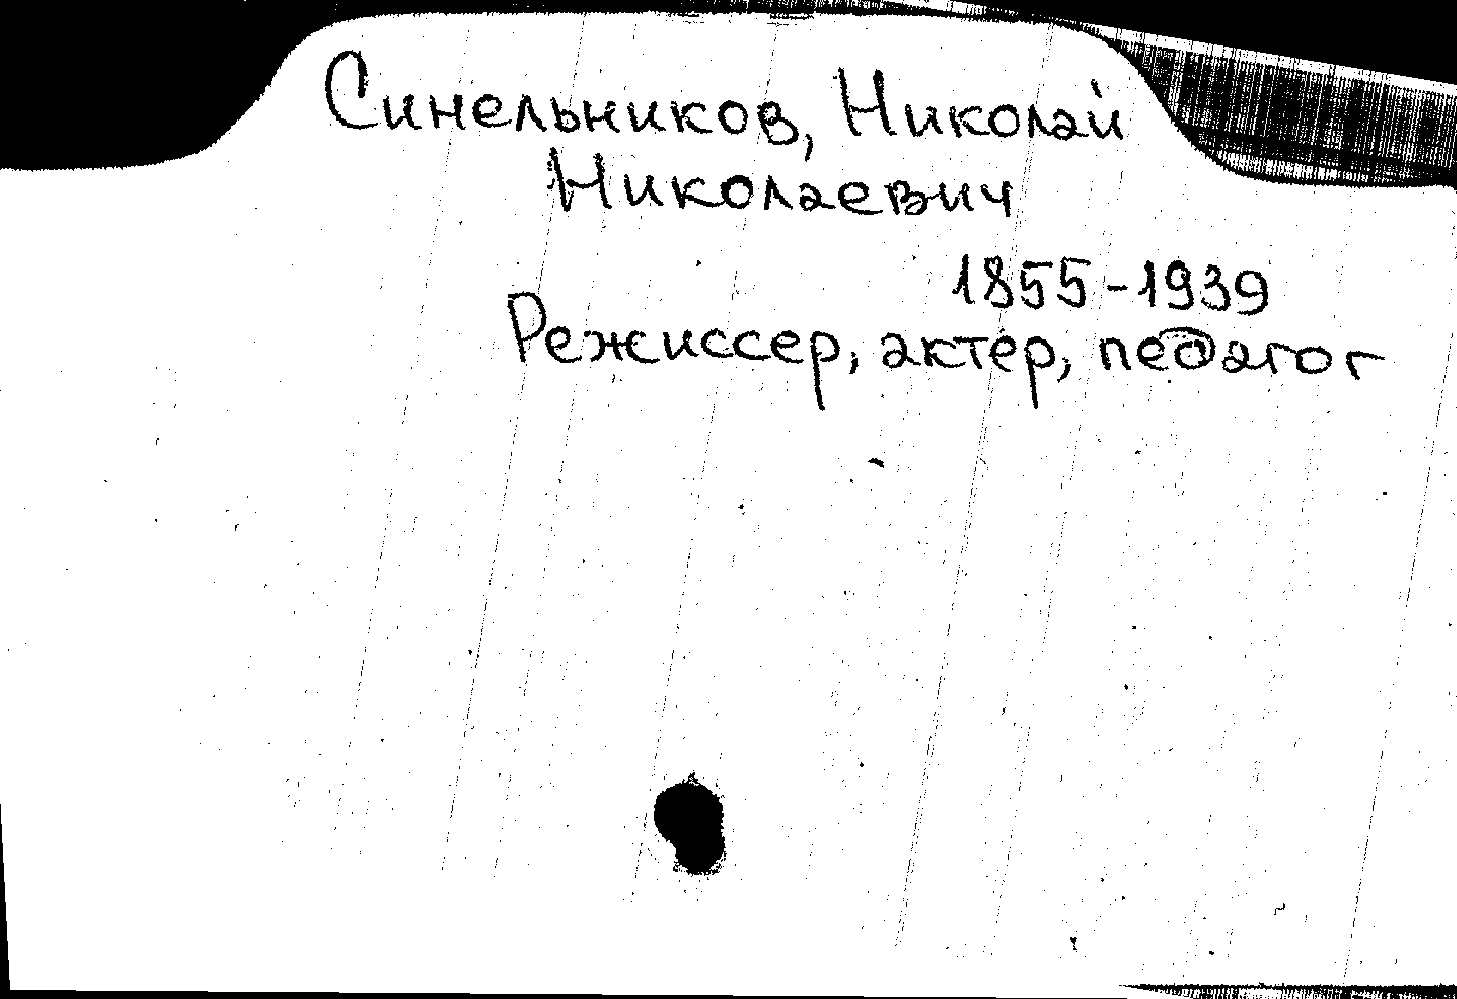 Синельников, Николай
Николаевич
1855-1939
Режиссер, актер, педагог